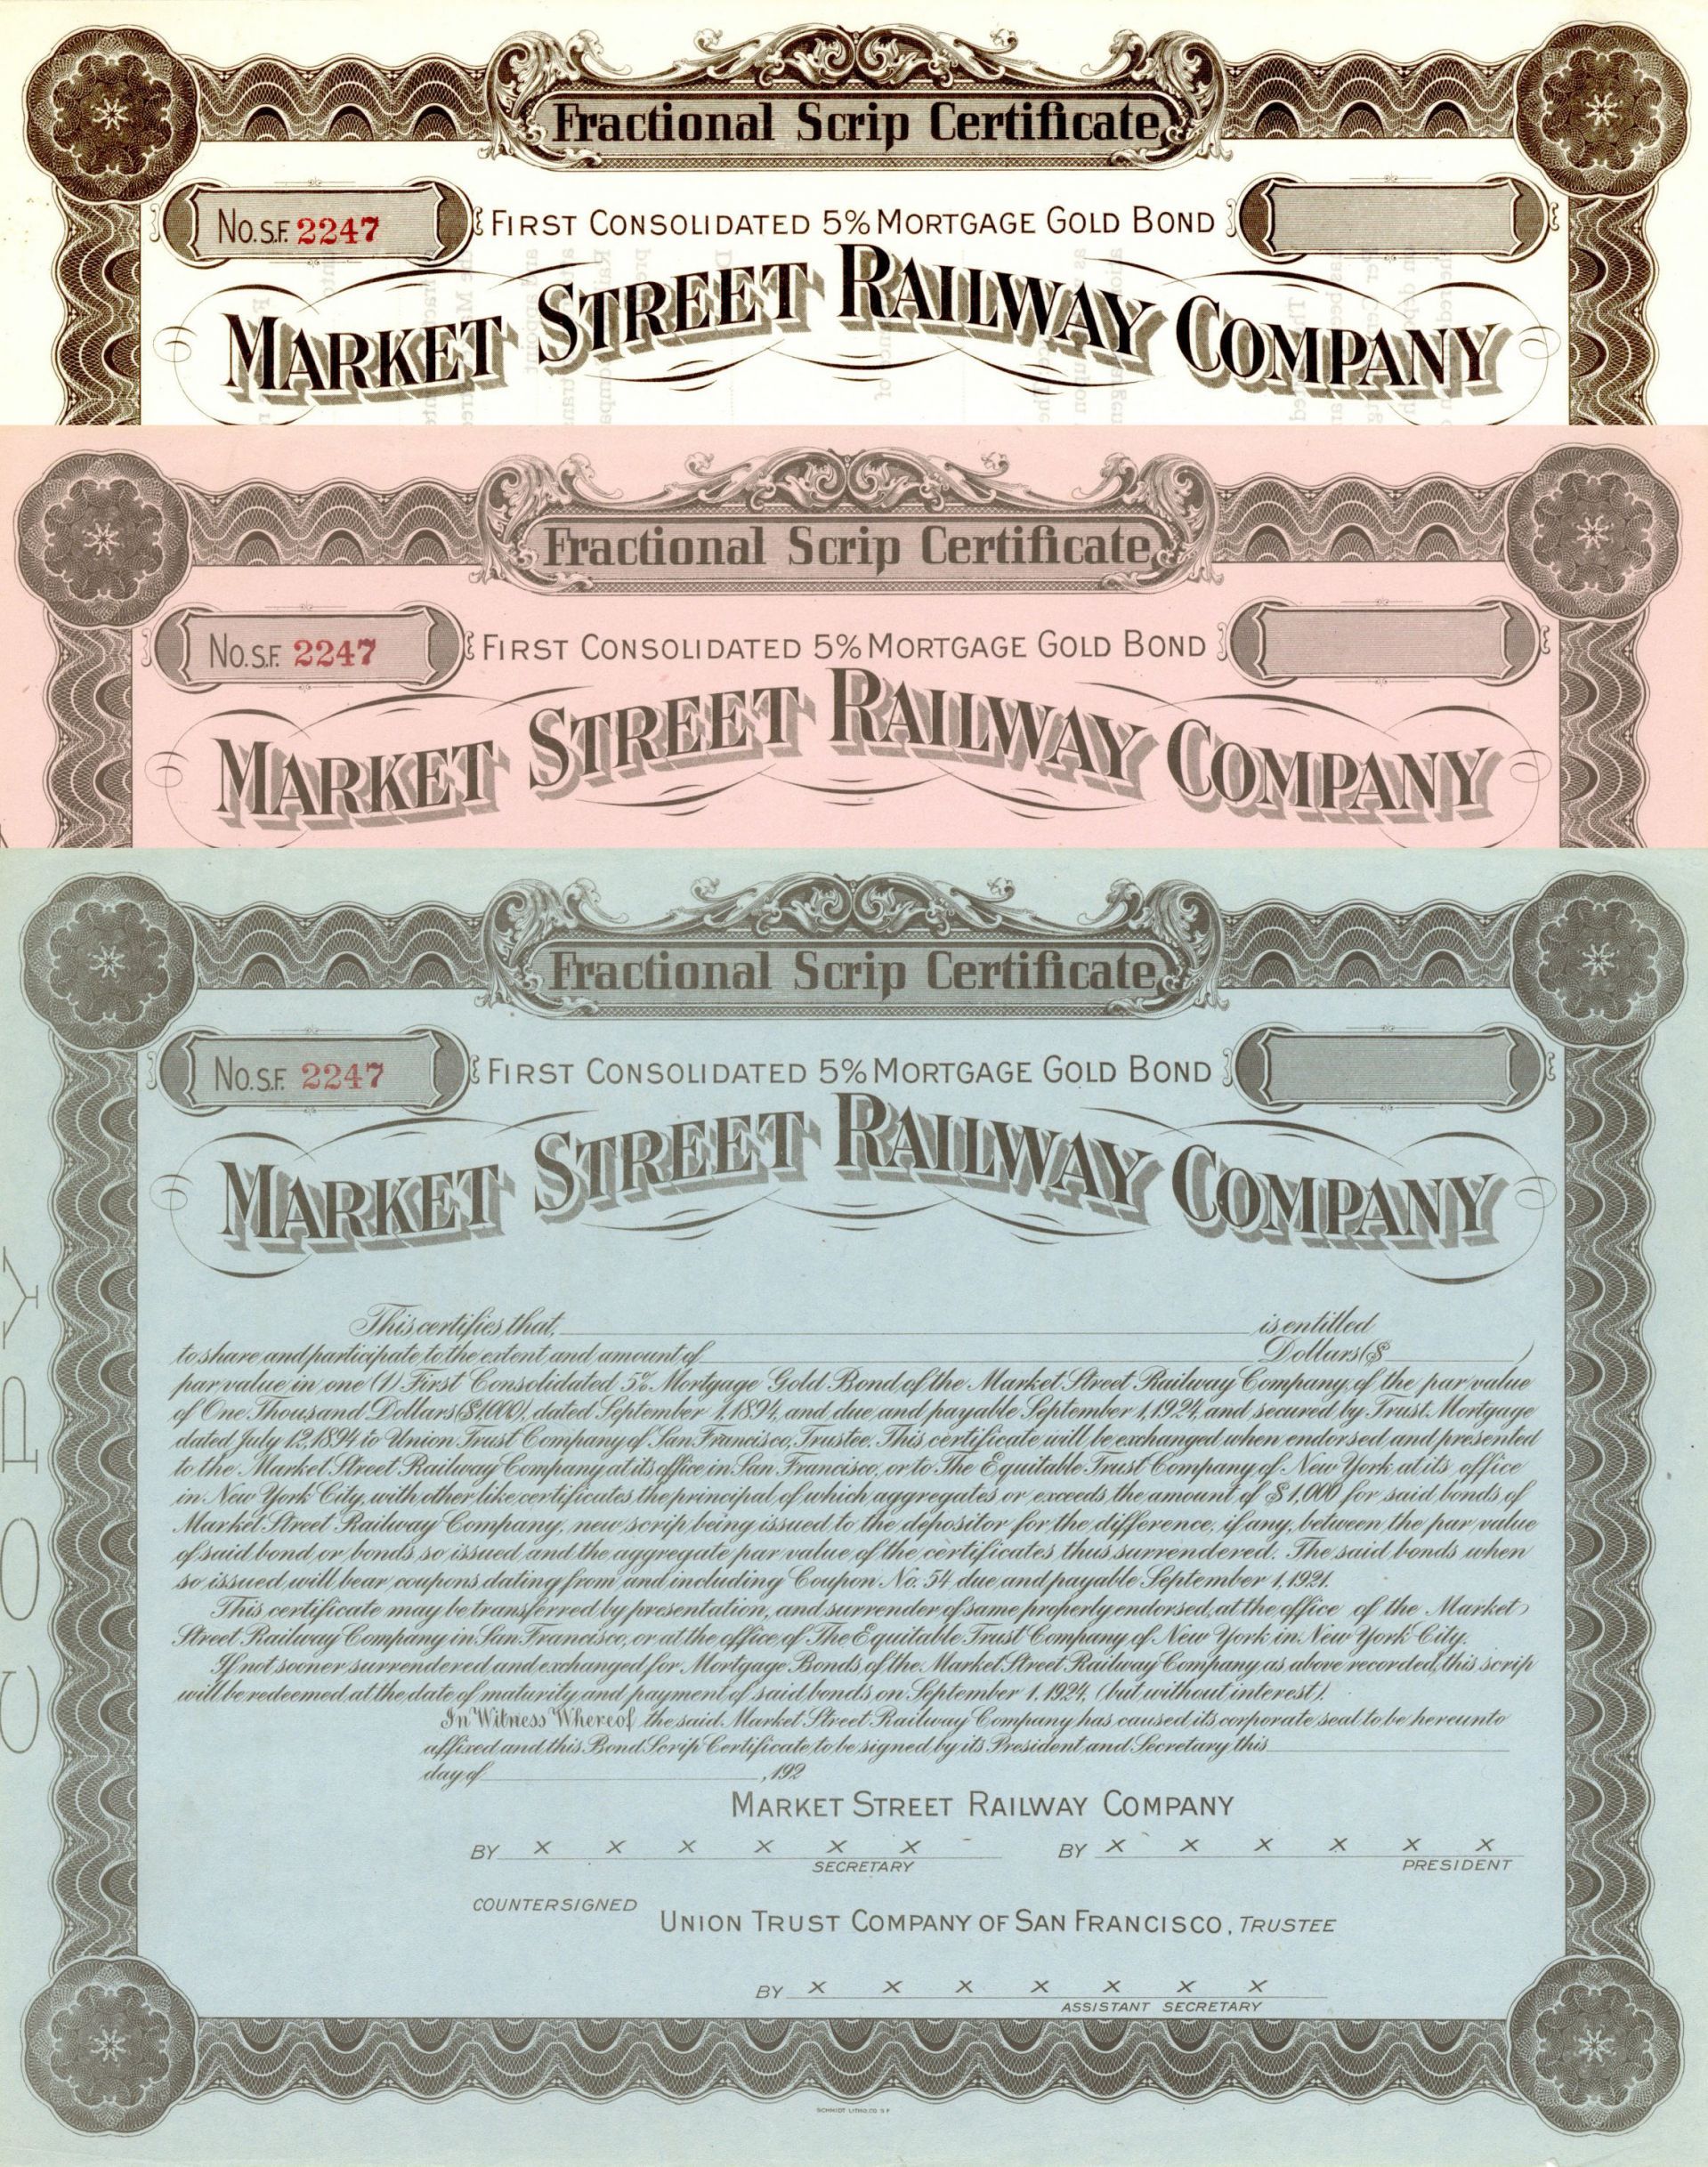 Fractional Scrip Certificate
No. S.F. 2247
FIRST CONSOLIDATED 5% MORTGAGE GOLD BOND
MARKET STREET RAILWAY COMPANY
Fractional Scrip Certificate
No. S.F. 2247
FIRST CONSOLIDATED 5% MORTGAGE GOLD BOND
MARKET STREET RAILWAY COMPANY
Fractional Scrip Certificate
No. S.F. 2247
FIRST CONSOLIDATED 5% MORTGAGE GOLD BOND
MARKET STREET RAILWAY COMPANY
COPY
This certifies that, is entitled
to share and participate to the extent and amount of Dollars ($ )
par value in one (1) First Consolidated 5% Mortgage Gold Bond of the Market Street Railway Company, of the par value
of One Thousand Dollars ($1,000), dated September 1, 1894, and due and payable September 1, 1924, and secured by Trust Mortgage
dated July 12, 1894 to Union Trust Company of San Francisco, Trustee. This certificate will be exchanged when endorsed and presented
to the Market Street Railway Company at its office in San Francisco, or to The Equitable Trust Company of New York at its office
in New York City, with other like certificates the principal of which aggregates or exceeds the amount of $1,000 for said bonds of
Market Street Railway Company, new scrip being issued to the depositor for the difference, if any, between the par value
of said bond or bonds so issued and the aggregate par value of the certificates thus surrendered. The said bonds when
so issued will bear coupons dating from and including Coupon No. 54 due and payable September 1, 1921.
This certificate may be transferred by presentation, and surrender of same properly endorsed, at the office of the Market
Street Railway Company in San Francisco, or at the office of The Equitable Trust Company of New York in New York City.
If not sooner surrendered and exchanged for Mortgage Bonds of the Market Street Railway Company as above recorded, this scrip
will be redeemed at the date of maturity and payment of said bonds on September 1, 1924, (but without interest).
In Witness Whereof the said Market Street Railway Company has caused its corporate seal to be hereunto
affixed and this Bond Scrip Certificate to be signed by its President and Secretary this
day of , 192
MARKET STREET RAILWAY COMPANY
BY X X X X X X BY X X X X X X
SECRETARY PRESIDENT
COUNTERSIGNED
UNION TRUST COMPANY OF SAN FRANCISCO, TRUSTEE
BY X X X X X X X
ASSISTANT SECRETARY
SCHMIDT LITHO. CO. S F